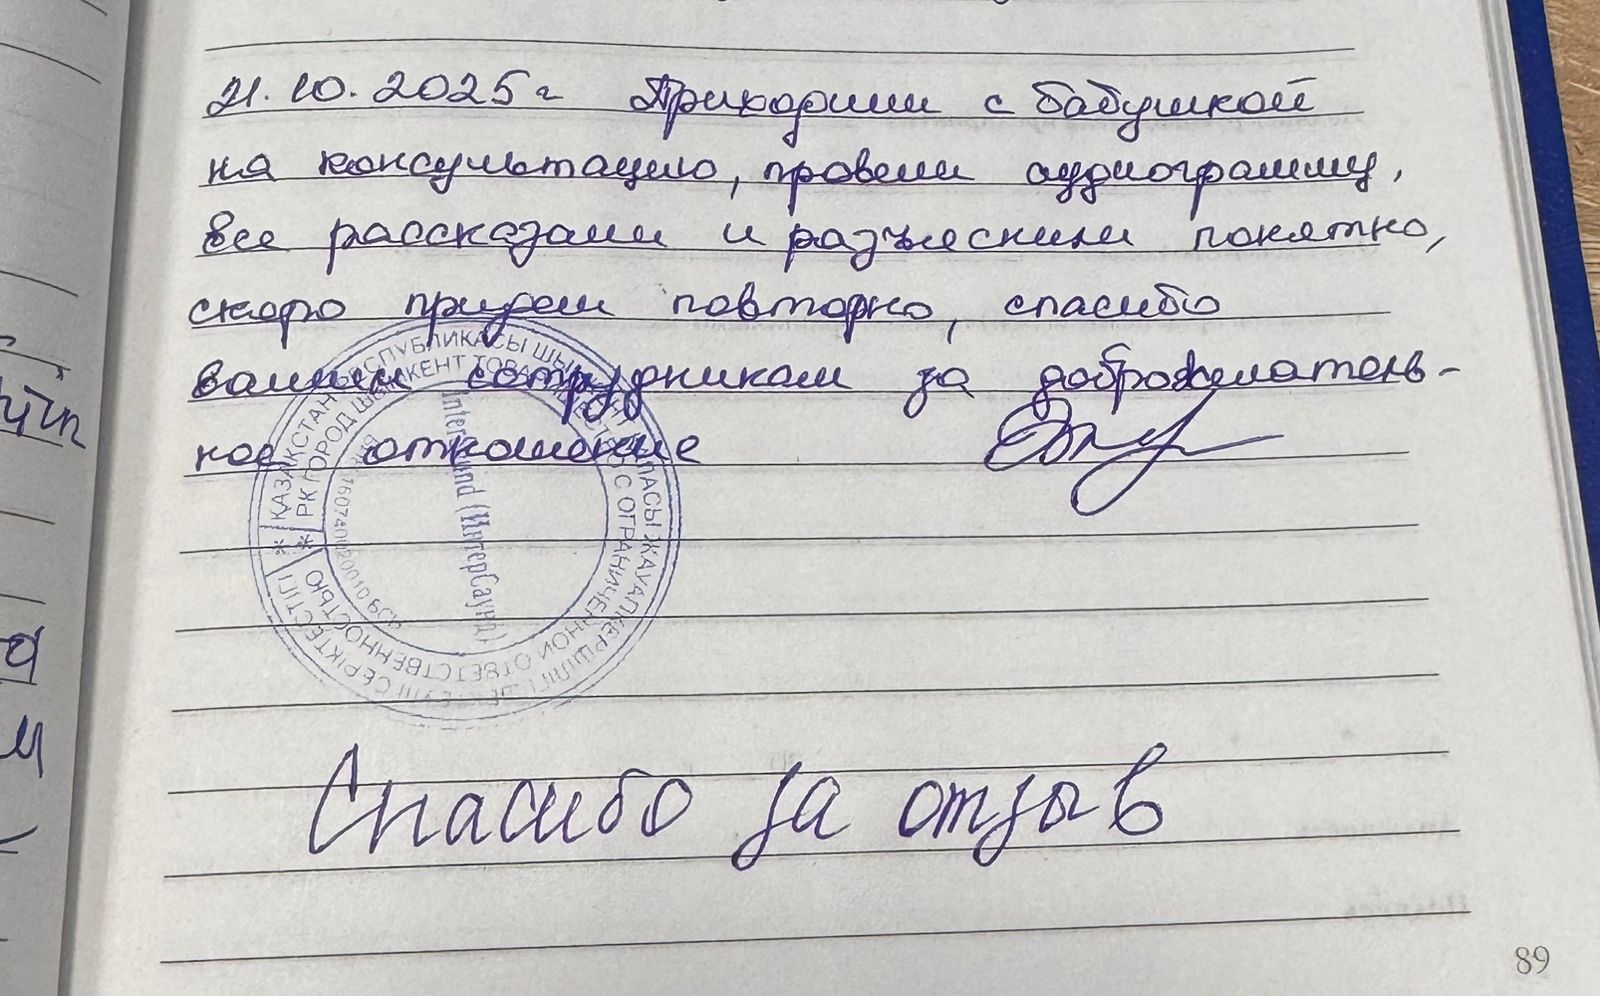 21.10.2025г Приходили с бабушкой
на консультацию, провели аудиограмму,
все рассказали и разъяснили понятно,
скоро придем повторно, спасибо
вашим сотрудникам за доброжелатель-
ное отношение
ҚАЗАҚСТАН РЕСПУБЛИКАСЫ ШЫМКЕНТ ҚАЛАСЫ ЖАУАПКЕРШІЛІГІ СЕРІКТЕСТІГІ
РК ГОРОД ШЫМКЕНТ ТОВАРИЩЕСТВО С ОГРАНИЧЕННОЙ ОТВЕТСТВЕННОСТЬЮ
(ИнтерСаунд)
Спасибо за отзыв
89